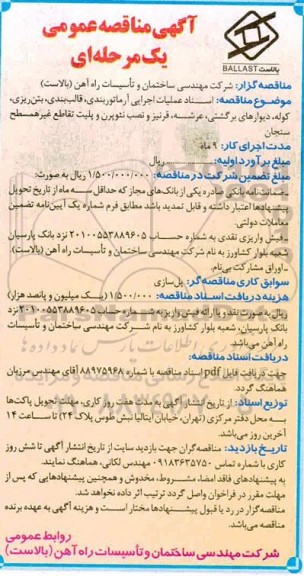 آگهی مناقصه عمومی
یک مرحله‌ای
بالاست BALLAST
مناقصه گزار: شرکت مهندسی ساختمان و تأسیسات راه آهن (بالاست)
موضوع مناقصه: اسناد عملیات اجرایی آرماتوربندی، قالب‌بندی، بتن‌ریزی،
کوله، دیوارهای برگشتی، عرشه، قرنیز و نصب نئوپرن و پلیت تقاطع غیرهمسطح
سنجان
مدت اجرای کار: ۹ ماه
مبلغ برآورد اولیه: ریال
مبلغ تضمین شرکت در مناقصه: ۱/۵۰۰/۰۰۰/۰۰۰ ریال به صورت:
ـ ضمانت نامه بانکی صادره یکی از بانک‌های مجاز که حداقل سه ماه از تاریخ تحویل
پیشنهادها اعتبار داشته و قابل تمدید باشد مطابق فرم شماره یک آیین‌نامه تضمین
معاملات دولتی.
ـ فیش واریزی نقدی به شماره حساب ۲۰۱۰۰۵۵۳۸۸۹۶۰۵ نزد بانک پارسیان
شعبه بلوار کشاورز به نام شرکت مهندسی ساختمان و تأسیسات راه آهن (بالاست).
ـ اوراق مشارکت بی‌نام.
سوابق کاری مناقصه‌گر: پل‌سازی
هزینه دریافت اسناد مناقصه: ۱/۵۰۰/۰۰۰ (یک میلیون و پانصد هزار)
ریال به صورت نقد و یا ارائه فیش واریز به حساب ۲۰۱۰۰۵۵۳۸۸۹۶۰۵ نزد
بانک پارسیان، شعبه بلوار کشاورز به نام شرکت مهندسی ساختمان و تأسیسات
راه آهن می‌باشد.
دریافت اسناد مناقصه:
جهت دریافت فایل pdf اسناد مناقصه با شماره ۸۸۹۷۵۹۶۸ آقای مهندس مرزبان
هماهنگ گردد.
توزیع اسناد: از تاریخ انتشار آگهی به مدت هفت روز کاری، مهلت تحویل پاکت‌ها
به محل دفتر مرکزی (تهران، خیابان ایتالیا نبش طوس پلاک ۲۴) تا ساعت ۱۴
آخرین روز می‌باشد.
تاریخ بازدید: مناقصه گران جهت بازدید سایت از تاریخ انتشار آگهی تا شش روز
کاری با شماره تماس ۰۹۱۸۳۶۳۵۷۵۰ مهندس لکانی، هماهنگ نمایند.
به پیشنهادهای فاقد امضاء، مشروط، مخدوش و همچنین پیشنهادهایی که پس از
مهلت مقرر در فراخوان واصل گردد ترتیب اثر داده نخواهد شد.
مناقصه گزار در رد یا قبول پیشنهادها مختار است و هزینه آگهی به عهده برنده
مناقصه می‌باشد.
روابط عمومی
شرکت مهندسی ساختمان و تأسیسات راه آهن (بالاست)